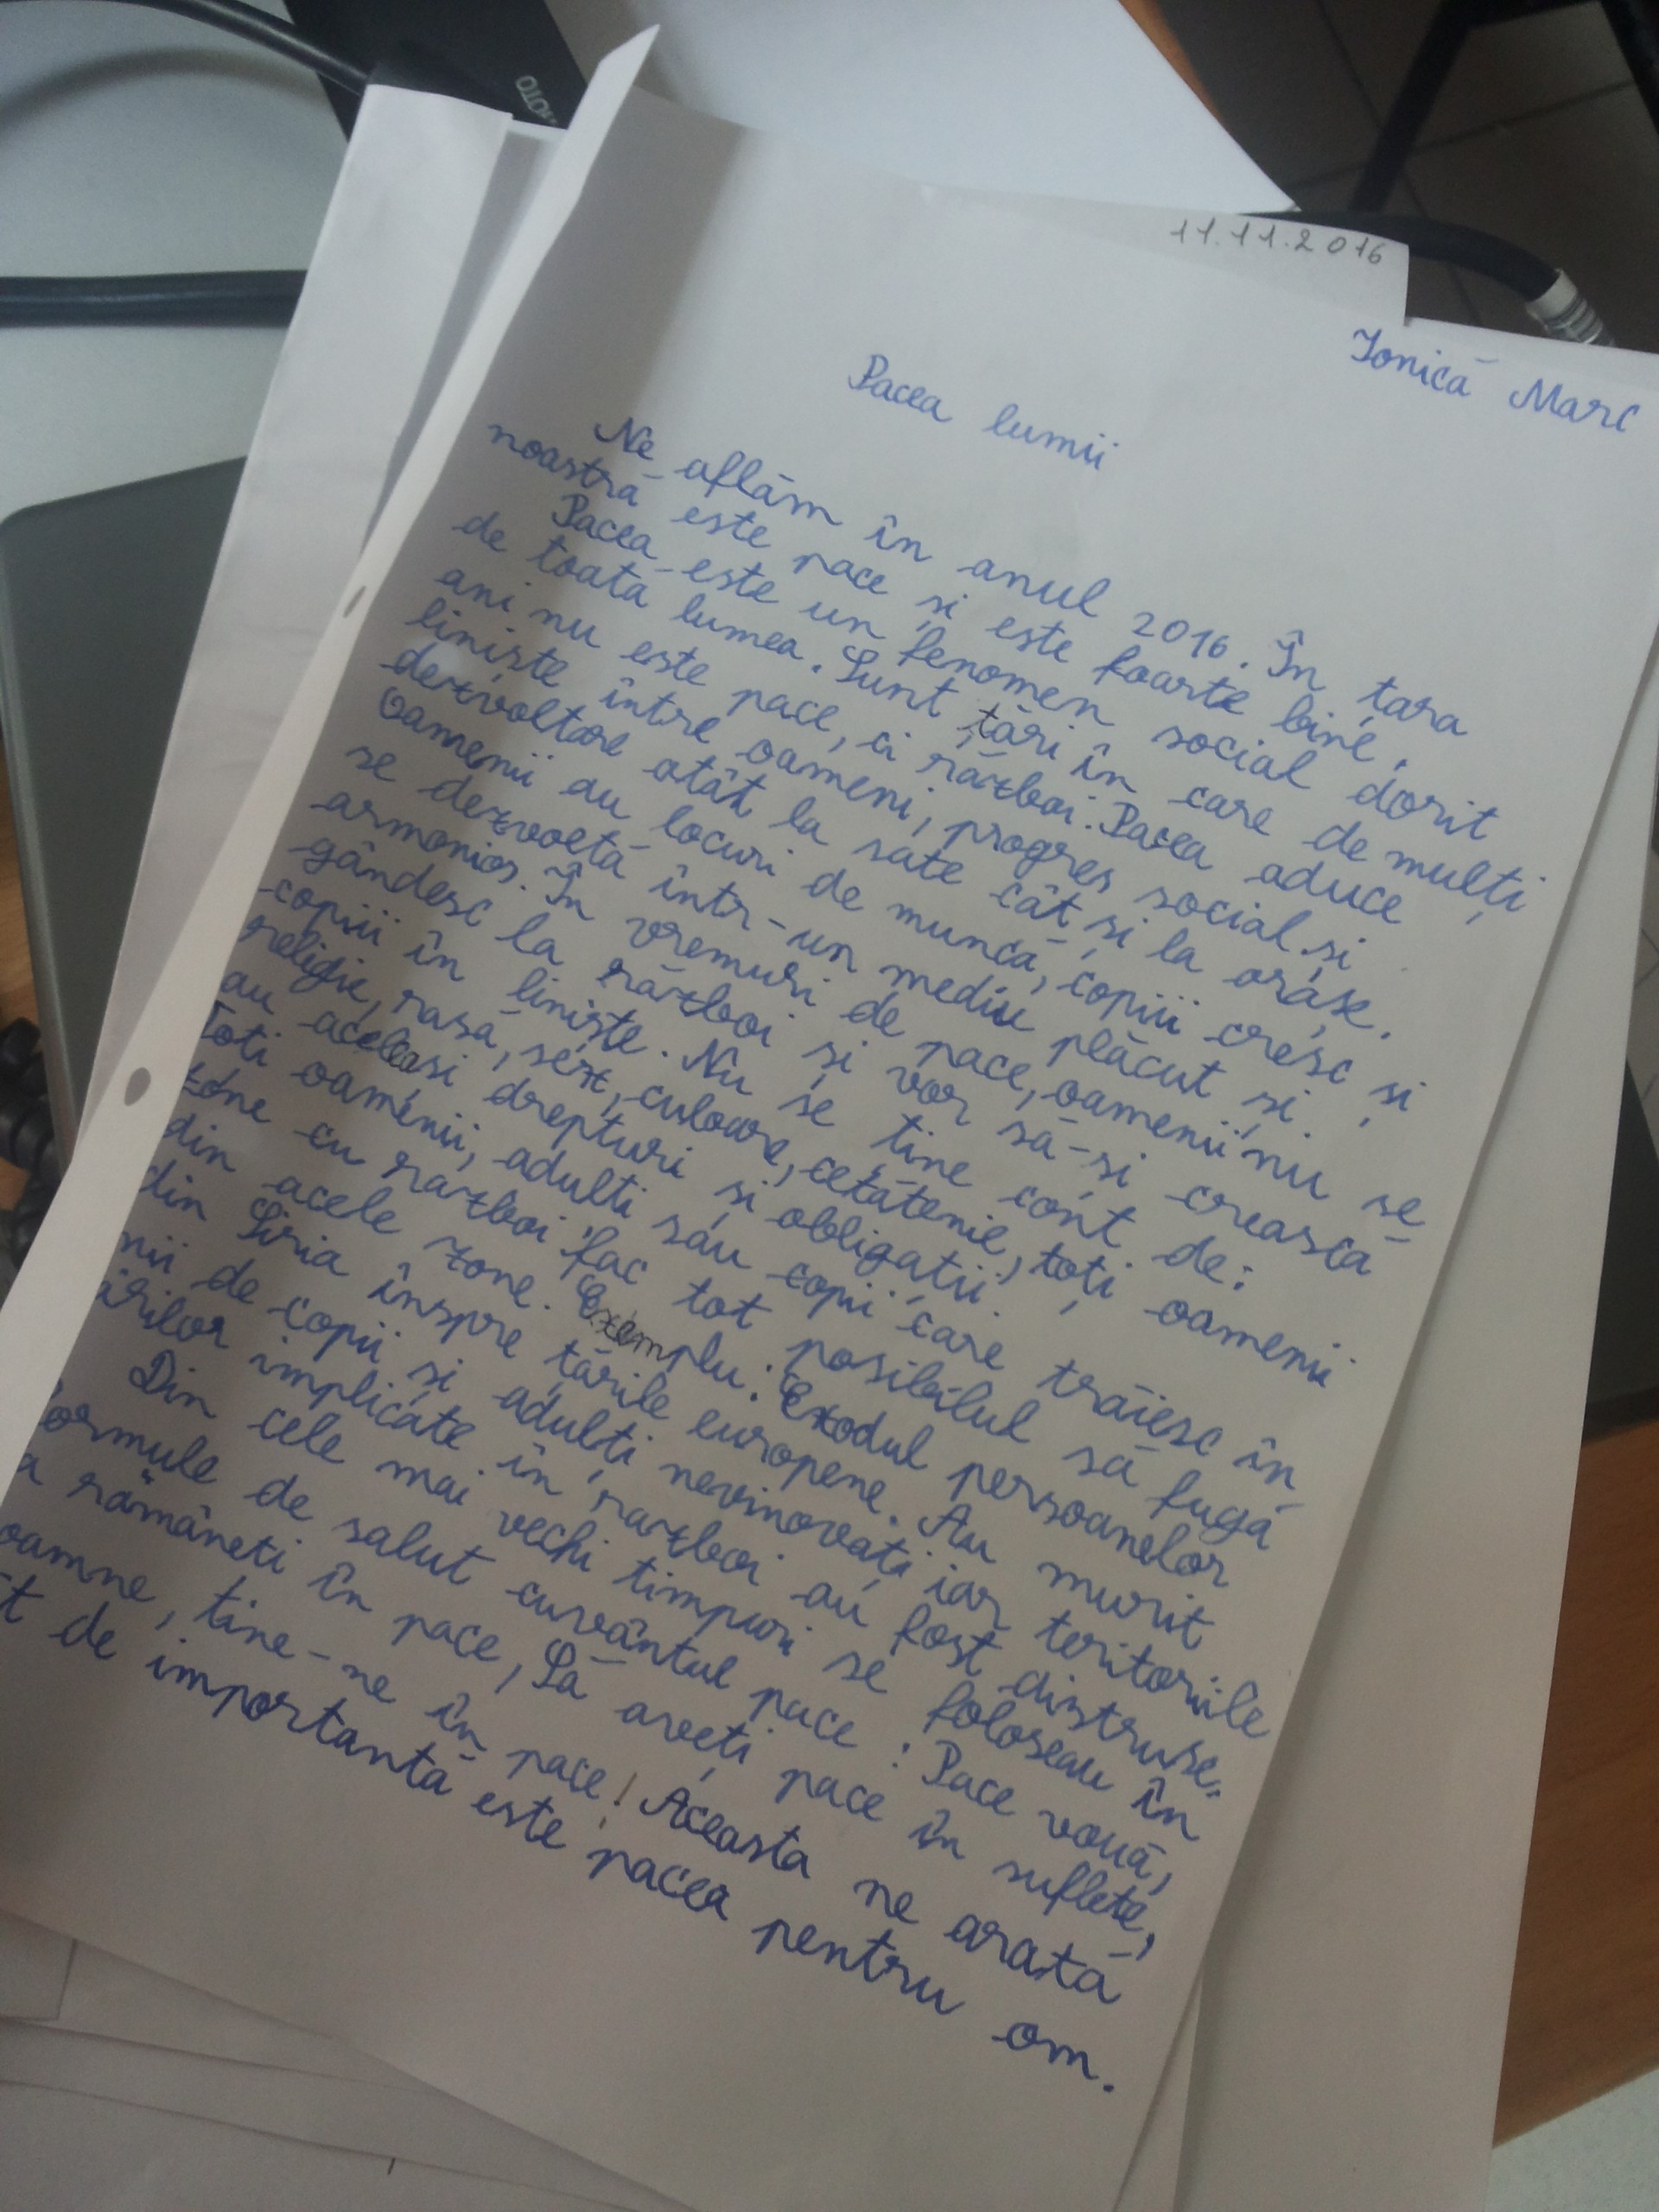 11.11.2016
Ionică Marc
Pacea lumii
Ne aflăm în anul 2016. În țara
noastră este pace și este foarte bine.
Pacea este un fenomen social dorit
de toată lumea. Sunt țări în care de mulți
ani nu este pace, ci război. Pacea aduce
liniște între oameni, progres social și
dezvoltare atât la sate cât și la orașe.
Oamenii au locuri de muncă, copiii cresc și
se dezvoltă într-un mediu plăcut și
armonios. În vremuri de pace, oamenii nu se
gândesc la război și vor să-și crească
copiii în liniște. Nu se ține cont de:
religie, rasă, sex, culoare, cetățenie, toți oamenii
au aceleași drepturi și obligații.
Toți oamenii, adulți sau copii care trăiesc în
zone cu război fac tot posibilul să fugă
din acele zone. Exemplu: Exodul persoanelor
din Siria înspre țările europene. Au murit
mii de copii și adulți nevinovați iar teritoriile
țărilor implicate în război au fost distruse.
Din cele mai vechi timpuri se foloseau în
formule de salut cuvântul pace: Pace vouă,
rămâneți în pace, Să aveți pace în suflete,
Doamne, ține-ne în pace! Aceasta ne arată
de importantă este pacea pentru om.